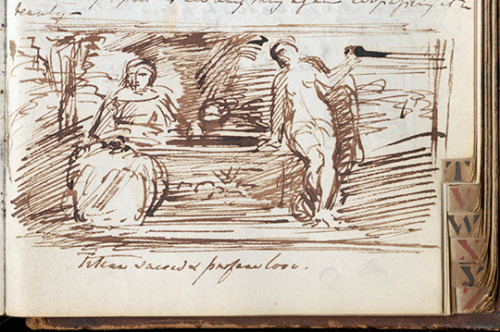 again
beauty —
Titian sacred & profane love.
T
V
W
X
Y
Z